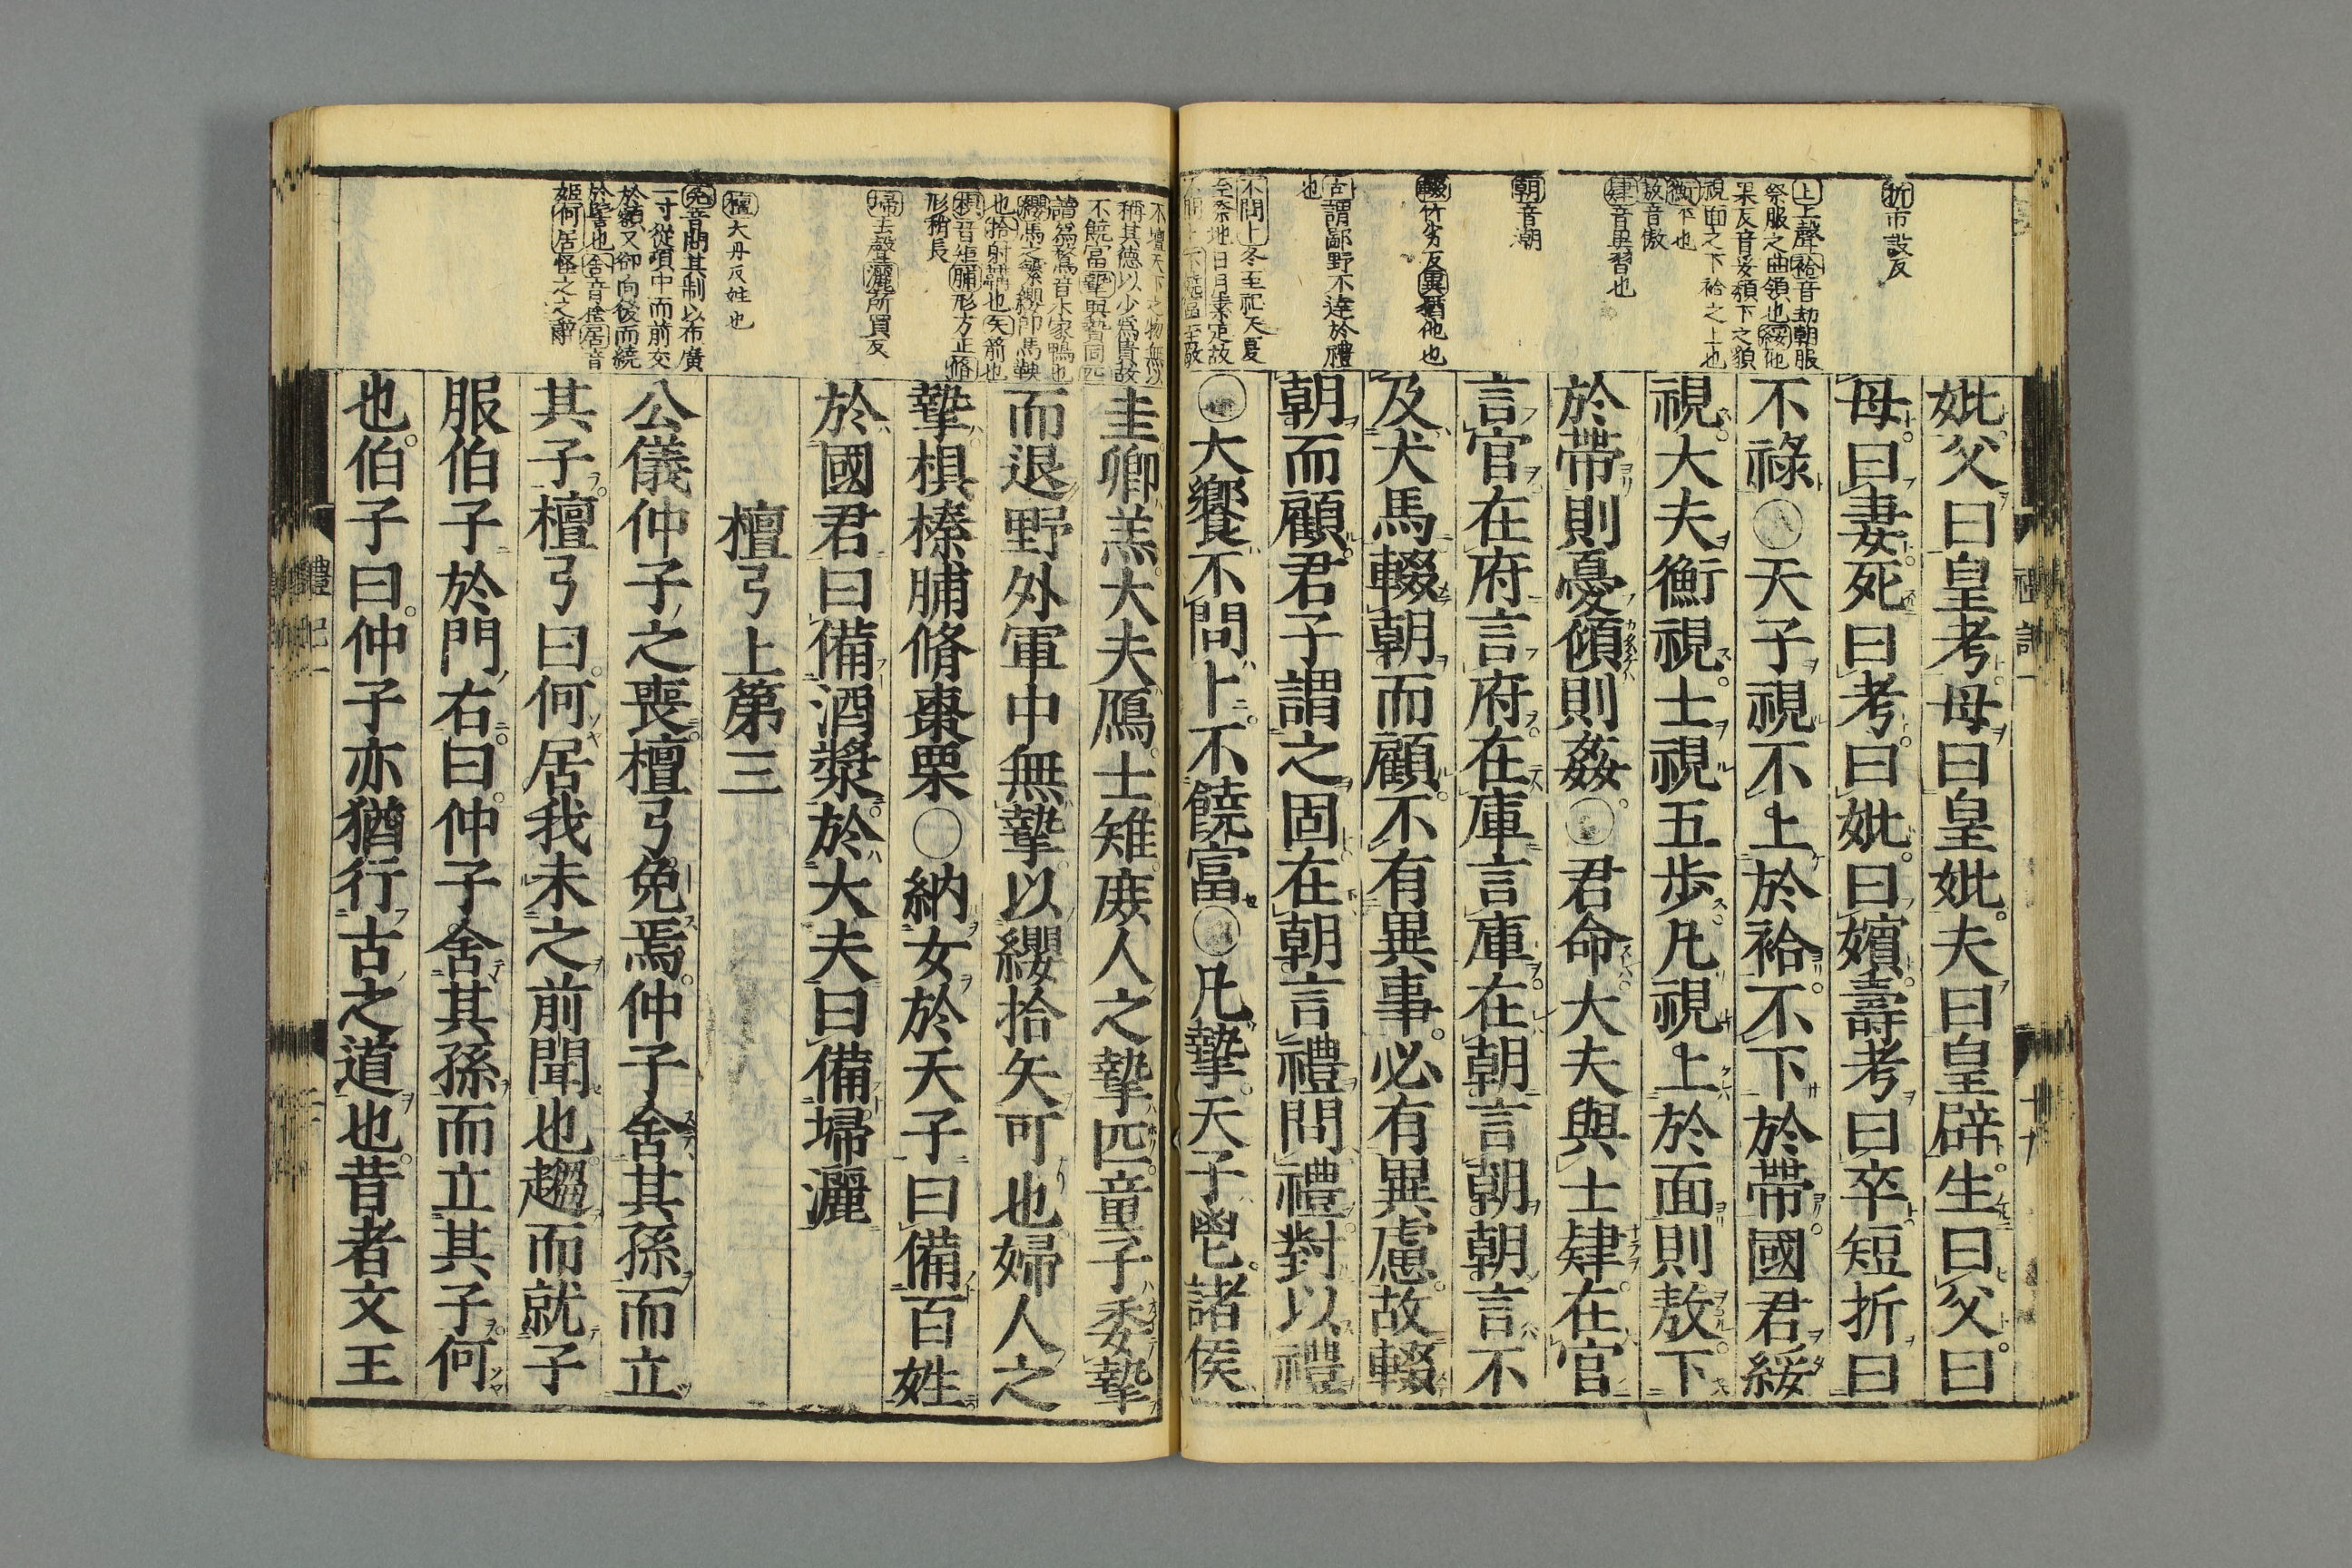 折市設反
上上聲袷音劫朝服
祭服之曲領也綏他
果反音妥頹下之貌
視面之下袷之上也
衡平也
敖音傲
肄音異習也
朝音潮
輟竹劣反異猶他也
固謂鄙野不達於禮
也
不問卜冬至祀天夏
至祭地日月素定故
妣父曰皇考母曰皇妣夫曰皇辟生曰父曰
母曰妻死曰考曰妣曰嬪壽考曰卒短折曰
不祿○天子視不上於袷不下於帶國君綏
視大夫衡視士視五步凡視上於面則敖下
於帶則憂傾則姦○君命大夫與士肄在官
言官在府言府在庫言庫在朝言朝朝言不
及犬馬輟朝而顧不有異事必有異慮故輟
朝而顧君子謂之固在朝言禮問禮對以禮
○大饗不問卜不饒富○凡摯天子鬯諸侯
稱其德以少爲貴故
不饒富摯與贄同匹
讀爲鶩音木家鴨也
纓馬之繁纓即馬鞅
也拾射韝也矢箭也
椇音矩脯形方正脩
形稍長
埽去聲灑所買反
檀大丹反姓也
免音問其制以布廣
一寸從項中而前交
於額又卻向後而繞
於髻也舍音捨居音
姬何居怪之之辭
圭卿羔大夫鴈士雉庶人之摯匹童子委摯
而退野外軍中無摯以纓拾矢可也婦人之
摯椇榛脯脩棗栗○納女於天子曰備百姓
於國君曰備酒漿於大夫曰備埽灑
檀弓上第三
公儀仲子之喪檀弓免焉仲子舍其孫而立
其子檀弓曰何居我未之前聞也趨而就子
服伯子於門右曰仲子舍其孫而立其子何
也伯子曰仲子亦猶行古之道也昔者文王
禮記一